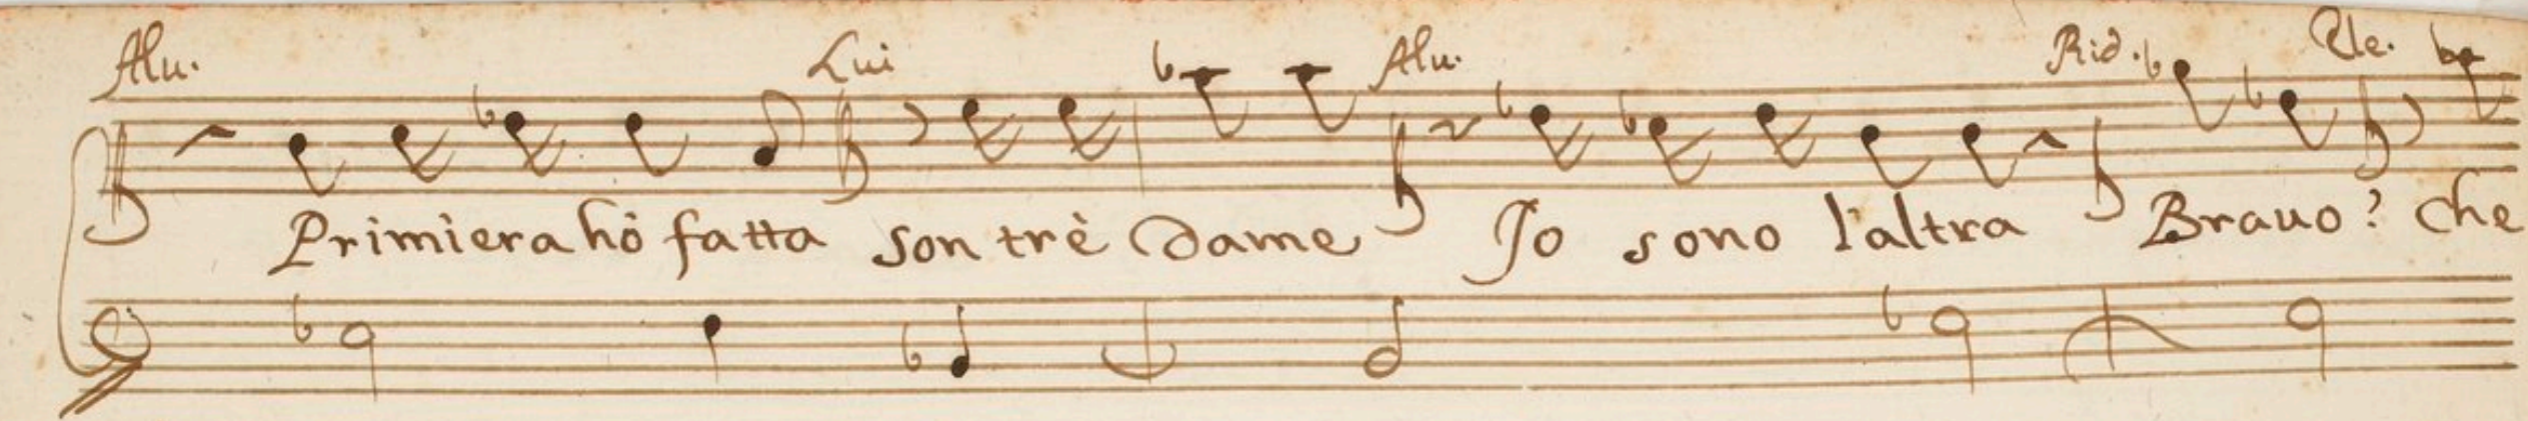 Alu. Lui Alu. Rid. Cle.
Primiera hò fatta son trè Dame Io sono l'altra Brauo? Che